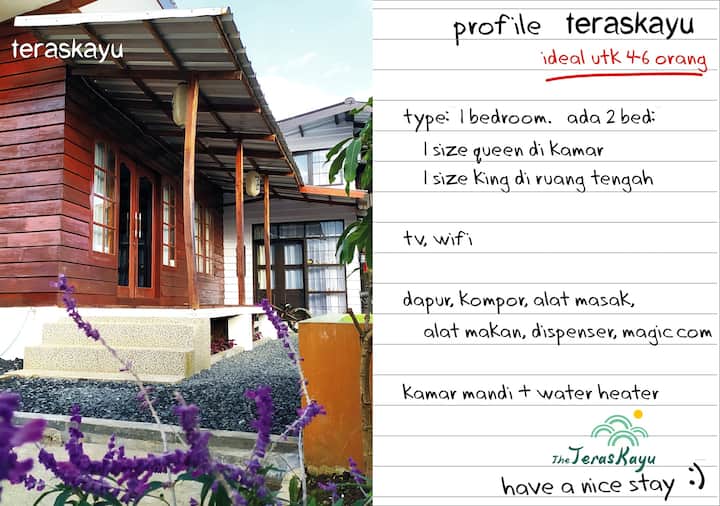 teraskayu
profile teraskayu
ideal utk 4-6 orang
type: 1 bedroom. ada 2 bed:
1 size queen di kamar
1 size King di ruang tengah
tv, wifi
dapur, kompor, alat masak,
alat makan, dispenser, magic com
Kamar mandi + water heater
The TerasKayu
have a nice stay :)